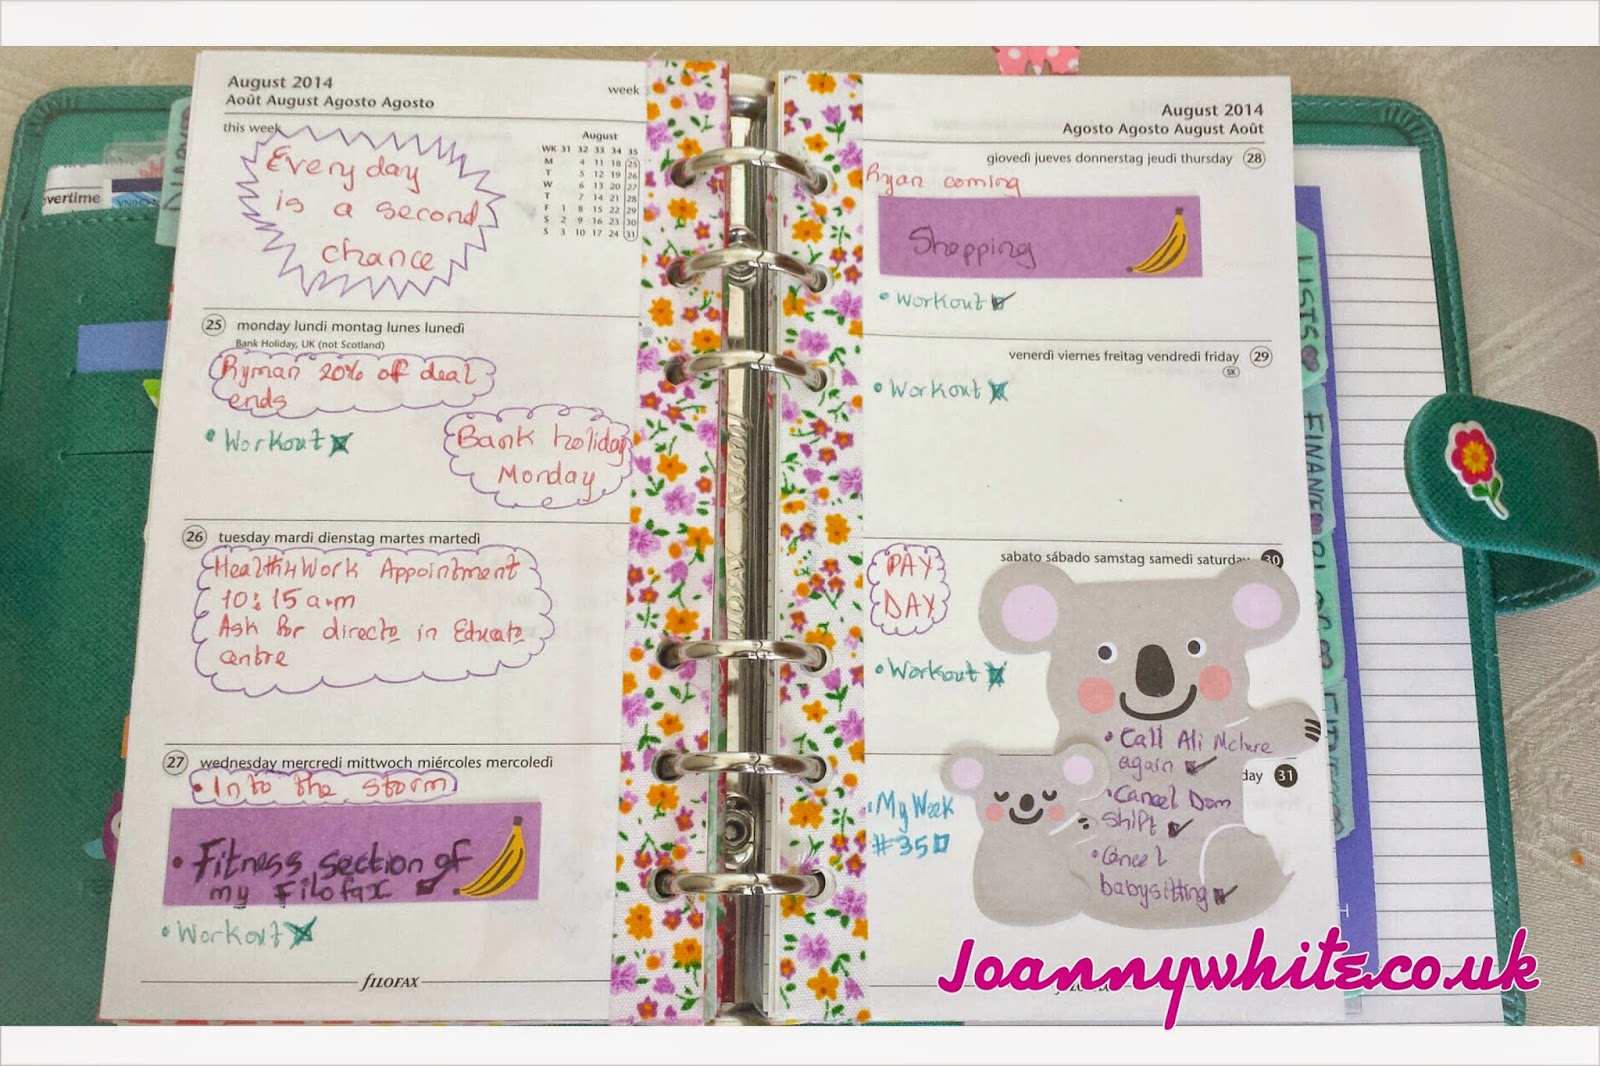 August 2014
Août August Agosto Agosto
week
this week
August
WK 31 32 33 34 35
M 4 11 18 25
T 5 12 19 26
W 6 13 20 27
T 7 14 21 28
F 1 8 15 22 29
S 2 9 16 23 30
S 3 10 17 24 31
Everyday
is a second
chance
25 monday lundi montag lunes lunedì
Bank Holiday, UK (not Scotland)
Ryman 20% of deal
ends
• Workout
Bank holiday
Monday
26 tuesday mardi dienstag martes martedì
Health4Work Appointment
10:15 a.m
Ask for directo in Educato
centre
27 wednesday mercredi mittwoch miércoles mercoledì
• Into the storm
• Fitness section of
my Filofax
• Workout
fILOFAX
vertime
August 2014
Agosto Agosto August Août
giovedì jueves donnerstag jeudi thursday 28
Ryan coming
Shopping
• Workout
venerdì viernes freitag vendredi friday 29
SK
• Workout
sabato sábado samstag samedi saturday 30
PAY
DAY
• Workout
• Call Ali McLure
again
day 31
• Cancel Dom
shift
• Cancel
babysitting
• My Week
#35
LISTS
FINANCE
Joannywhite.co.uk